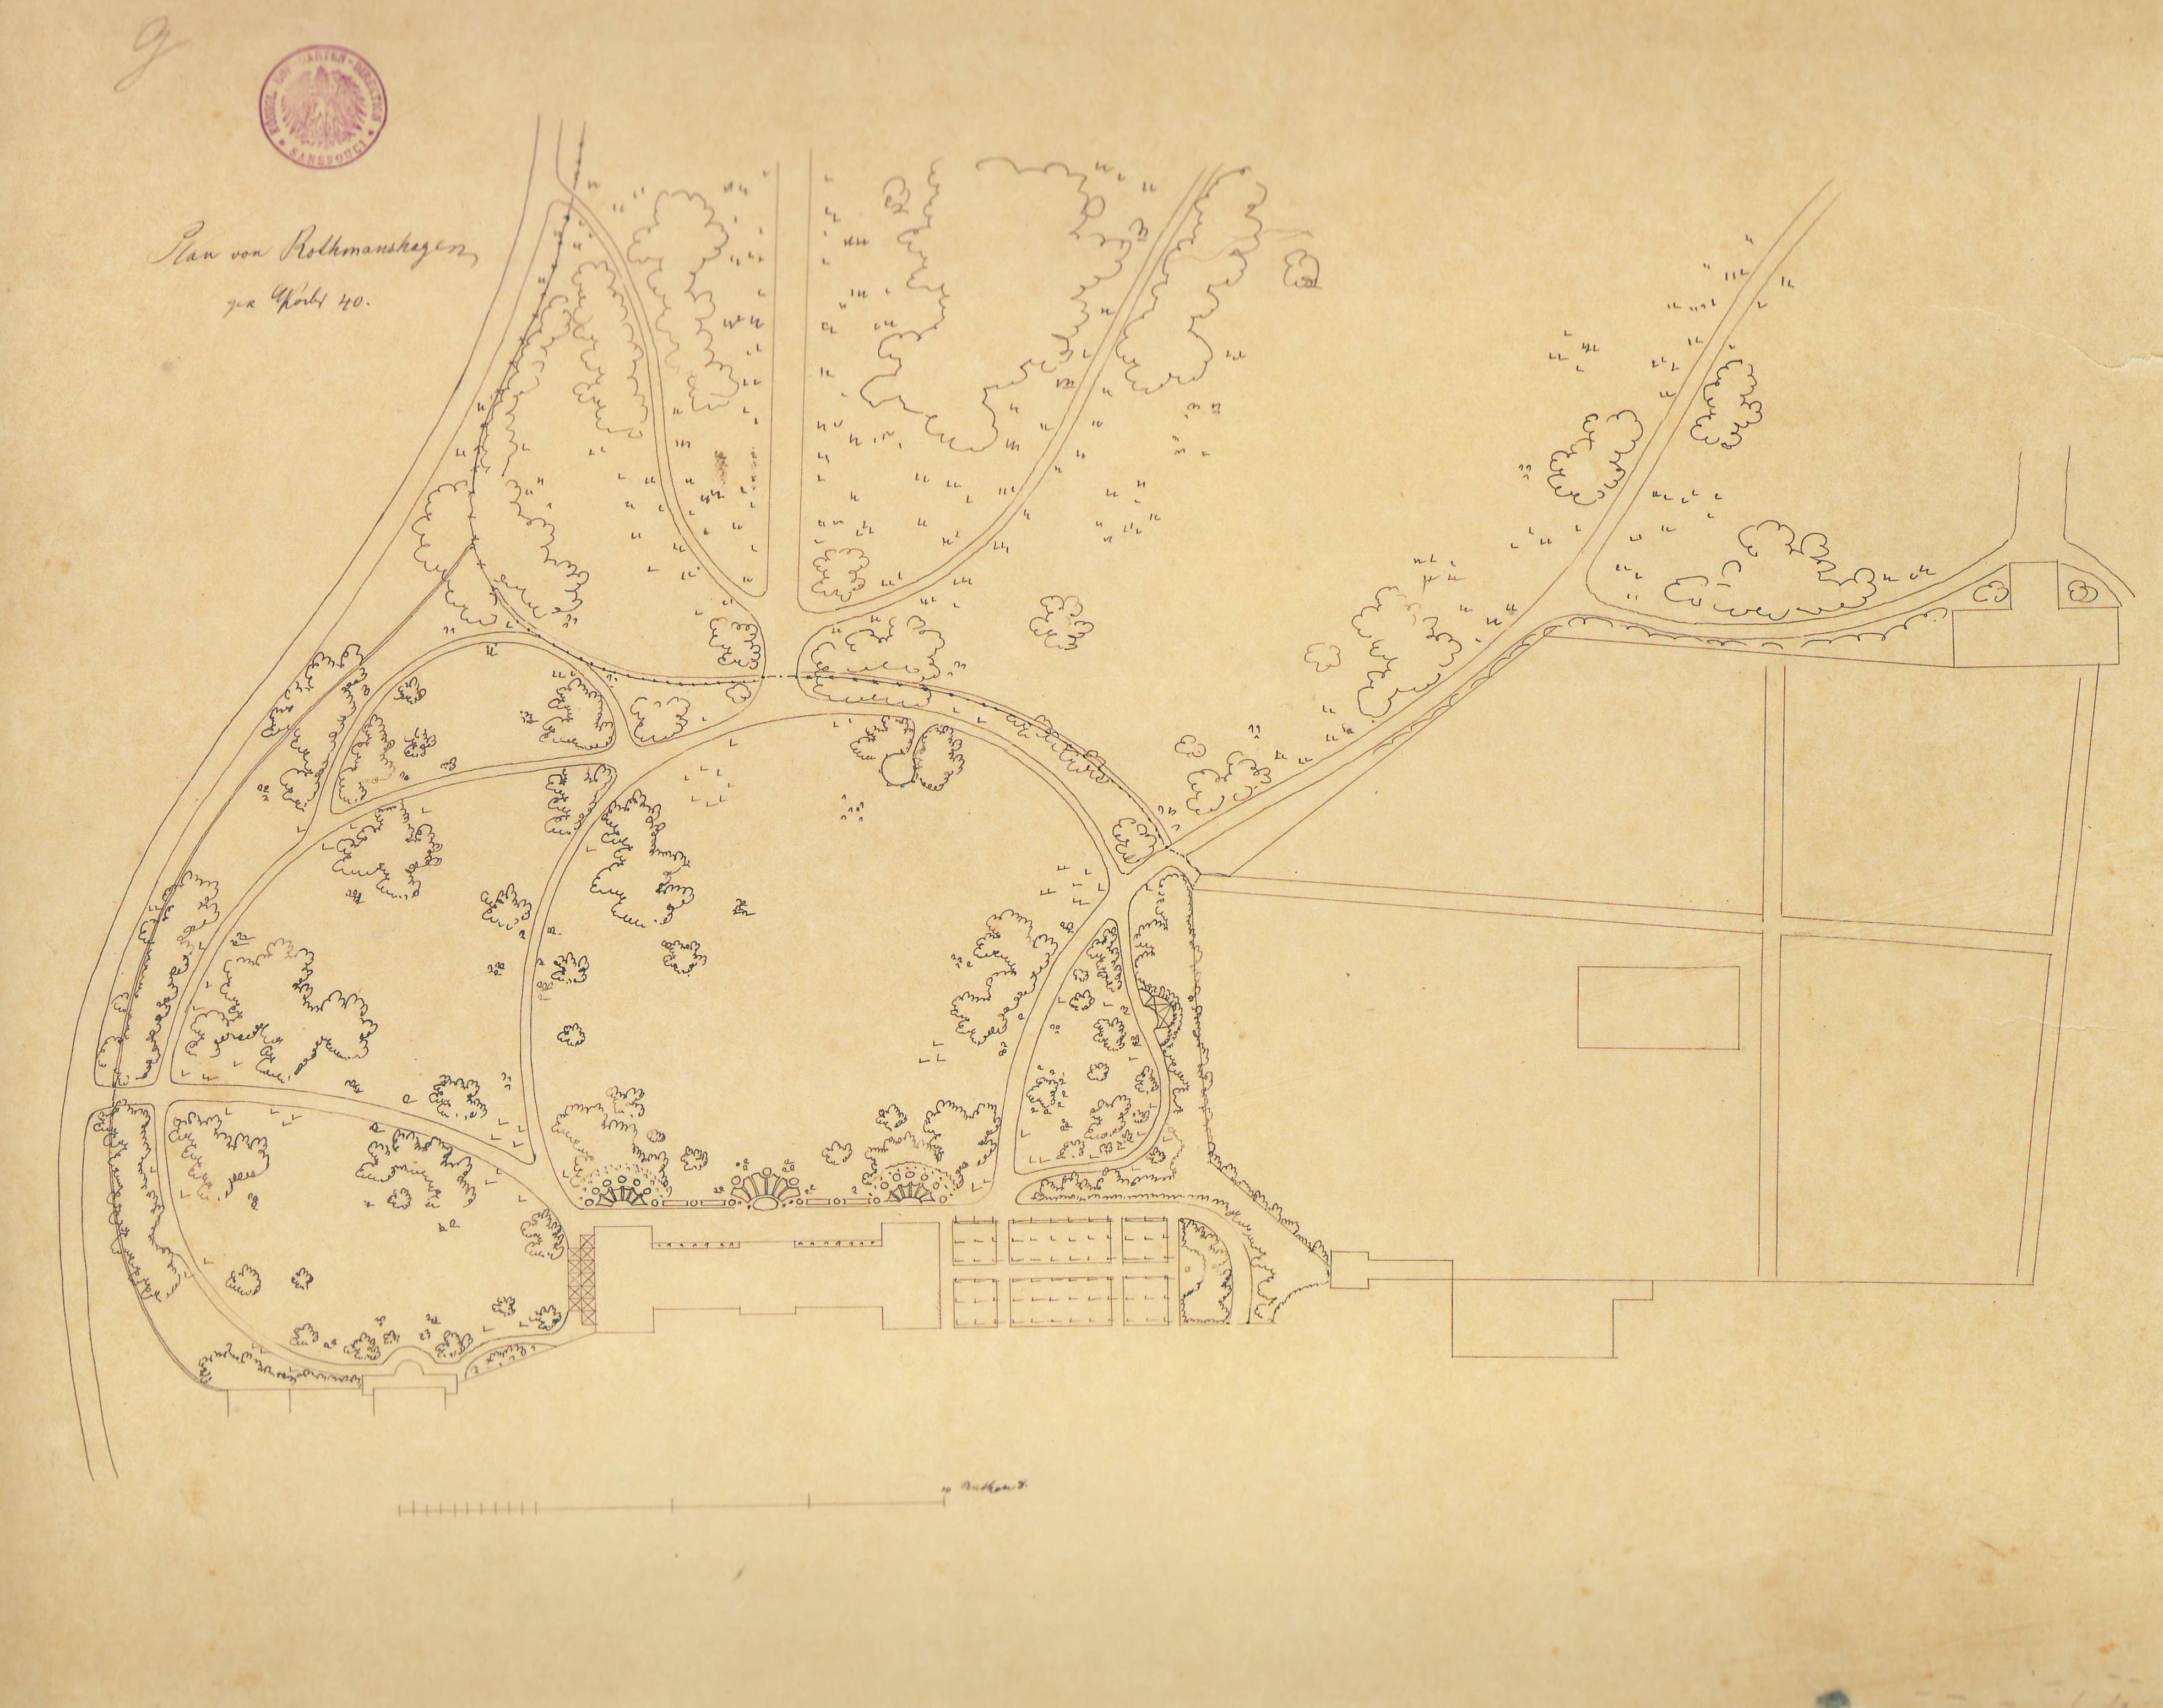 g
KÖNIGL. HOF-GARTEN-DIREKTION
* SANSSOUCI *
Plan von Rothmanshagen
gez 40.
10 Ruthen